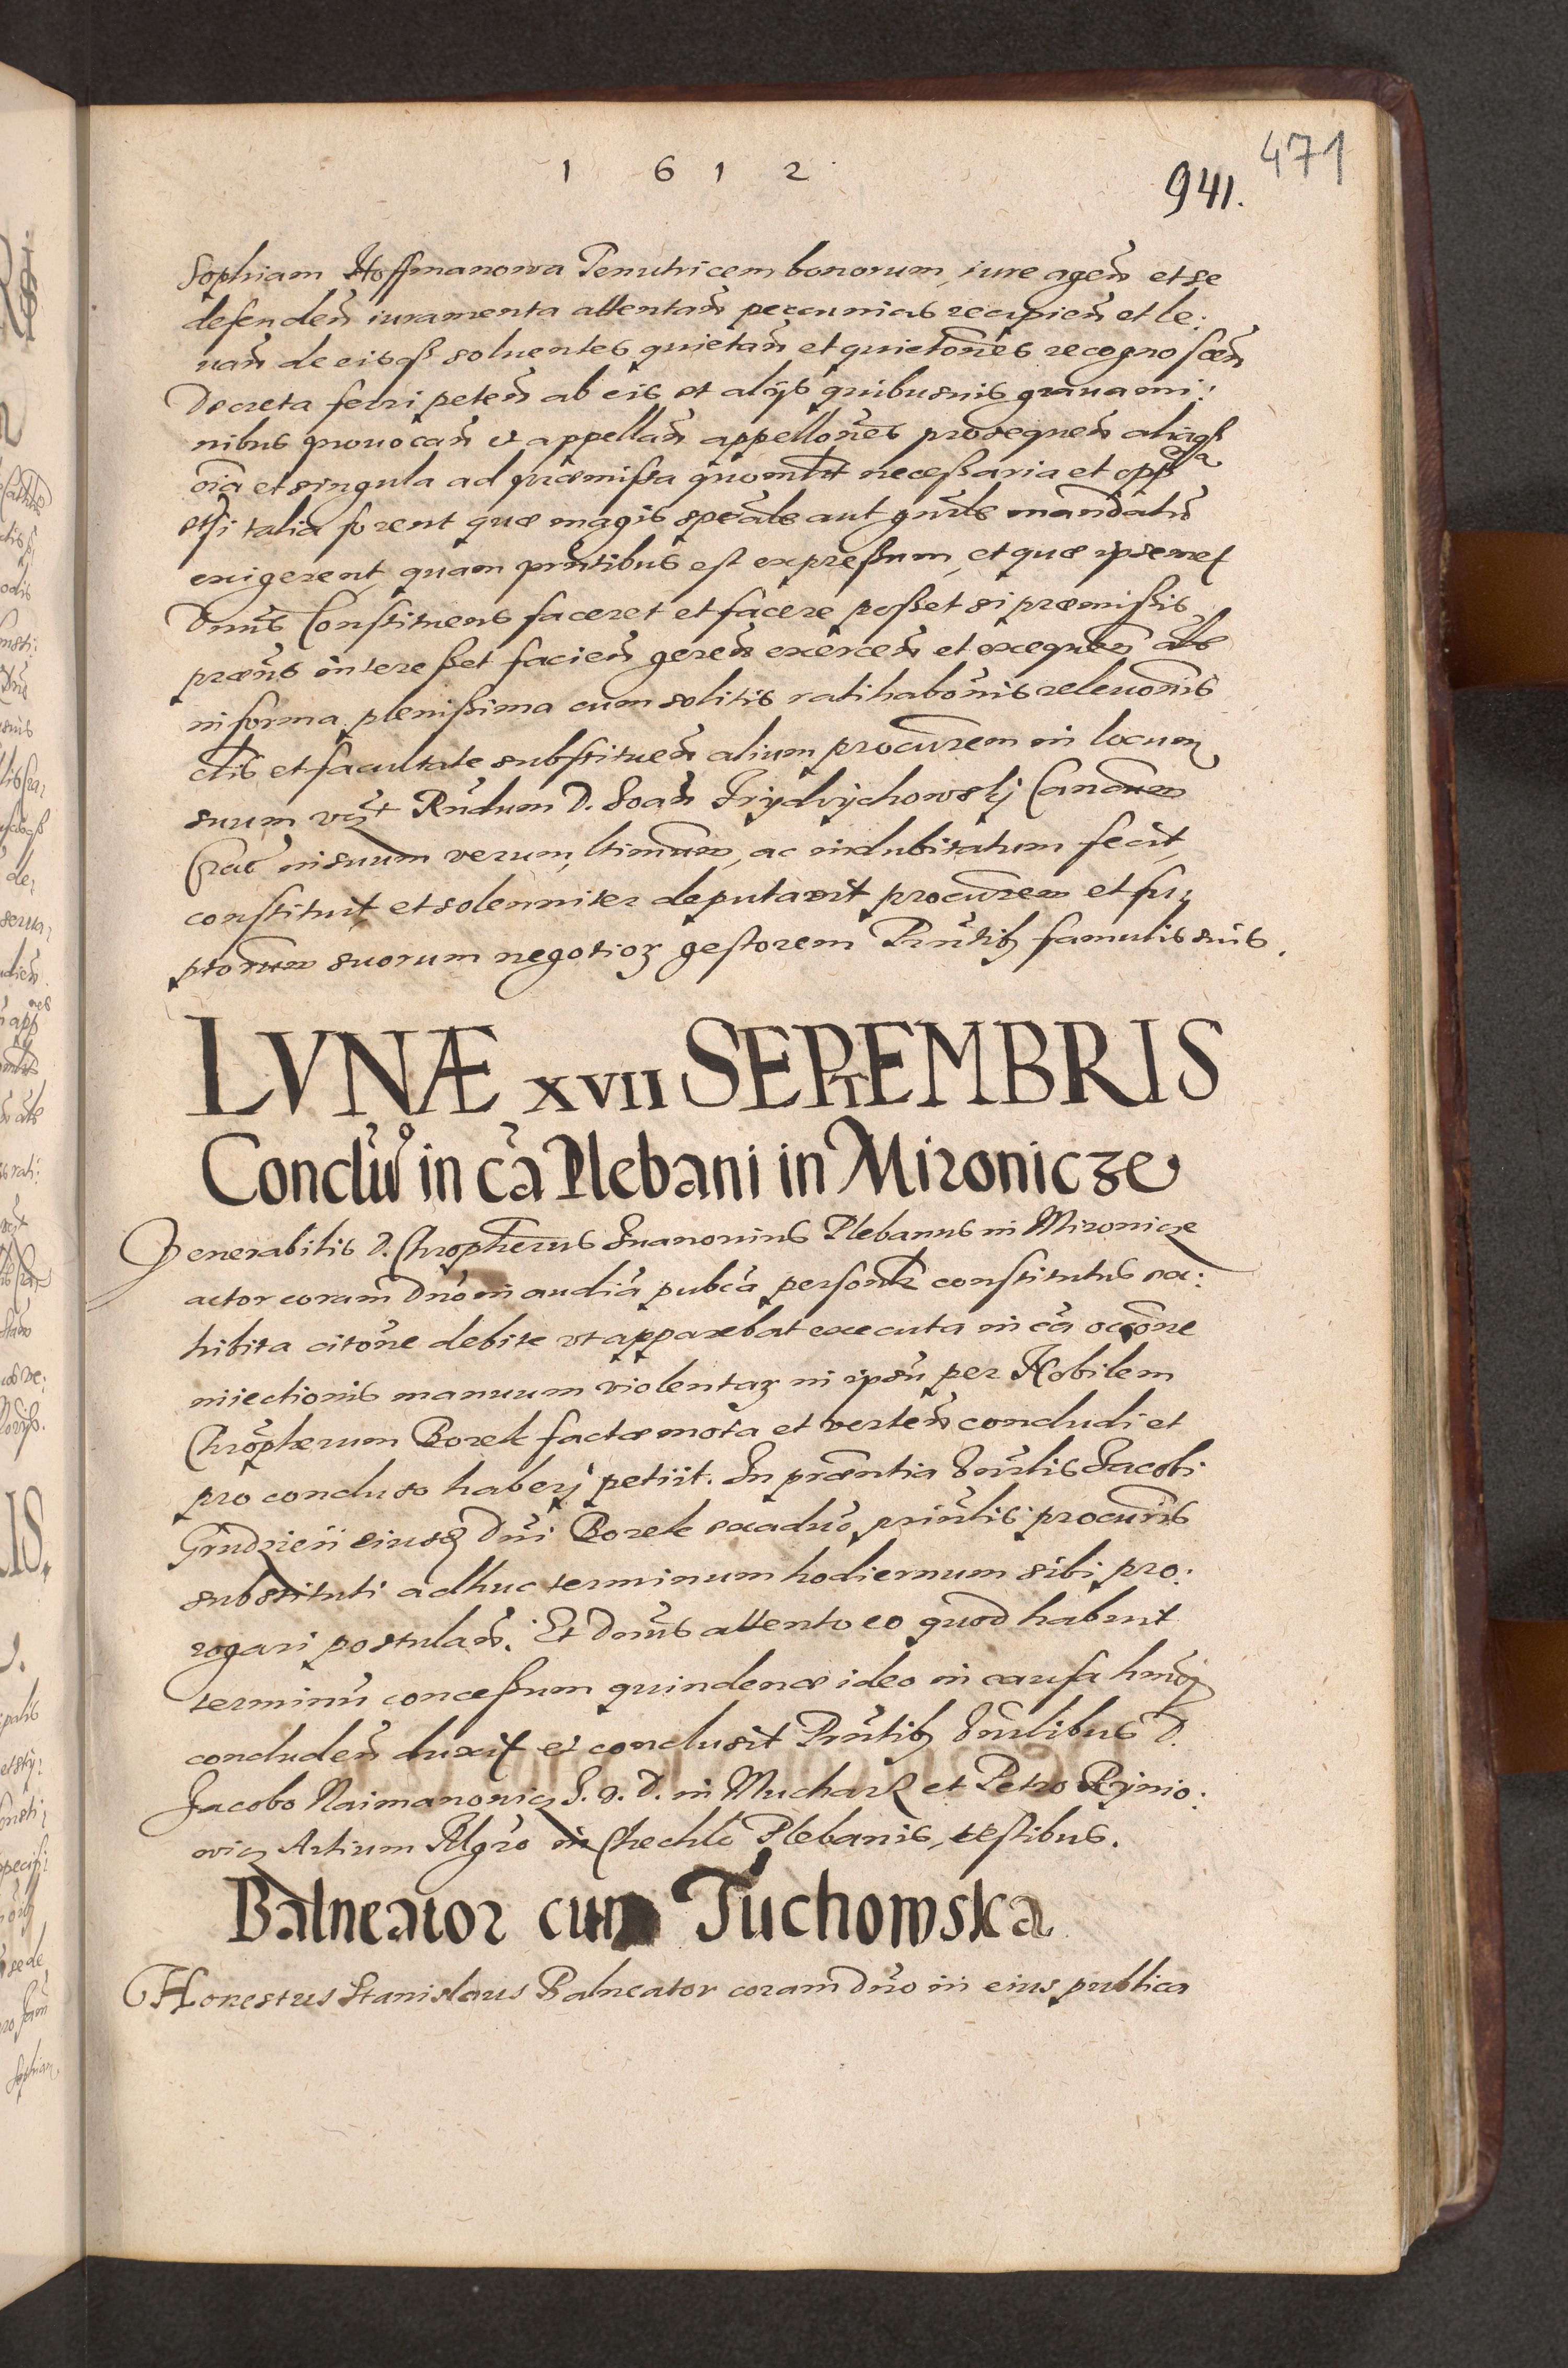 1 6 1 2
471
941.
Sophiam Hoffmanowa Tenutricem bonorum, iure agen̄ et se
defenden̄ iuramenta attentan̄ peccunias recipien̄ et le:
uan̄ de eisqȝ soluentes quietan̄ et quieto͠nes recognoscen̄
Decreta ferri peten̄ ab eis et alijs quibusuis grauami:
nibus prouocan̄ et appellan̄ appello͠nes prosequen̄ aliaqȝ
o͠ia et singula ad præmissa quomlt necessaria et opp͠na
etsi talia forent quæ magis spe͠cale aut gn͠rale mandatu͠
exigerent quam pn͠tibus est expressum, et quæ ipsemet
Dnu͠s Constituens faceret et facere posset si præmissis
præn͠s interesset facien̄ geren̄ exercen̄ et exequen̄ als
in forma plenissima cum solitis ratihabo͠nis releuo͠nis
ctis et facultate substituen̄ alium procu͠rem in locum
suum vct Rn͠dum D. Joan̄ Frydrychowskj Cano͠cum
Crac̄ in suum verum, ltimum, ac indubitatum fecit,
constituit et solenniter deputauit procu͠rem et fu:
ptorum suorum negotioȝ gestorem Pn͠tibȝ famulis suis.
LVNÆ XVII SEPTEMBRIS
Conclu͠o in ca͠ Plebani in Mironicze
Venerabilis D. Chro͠pherus Iuanouius Plebanus in Mironicze
actor coram Dn͠o in audia͠ pub͠ca person͠lr constitutus exa:
hibita cito͠ne debite vt apparebat executa in ca͠ occo͠ne
iniectionis manuum violentaȝ in ipsu͠ per Nobilem
Chro͠pherum Borek factæ mota et verten̄ concludi et
pro concluso haberj petiit. In præ͠ntia Hn͠rlis Jacobi
Grudzień eiusd Dn͠i Borek exaduo prin͠lis procu͠ris
substituti adhuc terminum hodiernum sibi pro:
rogari postulan̄. Et Dnu͠s attento eo quod habuit
terminu͠ concessum quindenæ ideo in causa hm͠oj
concluden̄ duxit et conclusit Pn͠tibȝ Hn͠rlibus D.
Jacobo Naimanowic S. D. in Mucharȝ et Petro Rynio:
wic Artium Mgr͠o in Chechlo Plebanis, testibus.
Balneator cum Tuchowska
Honestus Stanislaus Balneator coram Dn͠o in eius publica